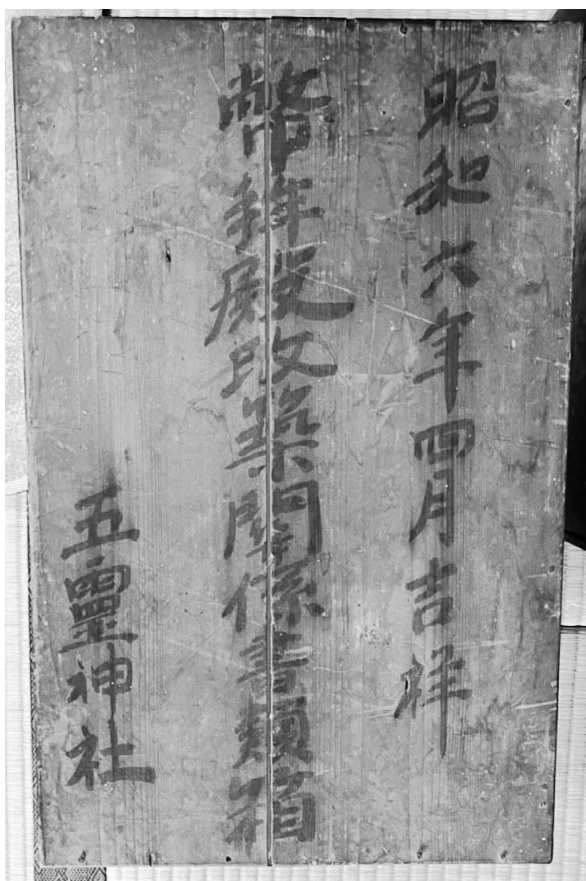 昭和六年四月吉祥
幣拜殿改築關係書類箱
五靈神社